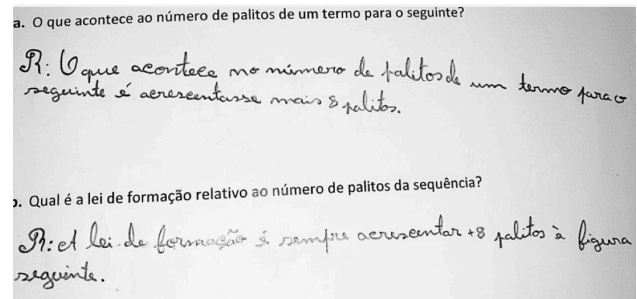 a. O que acontece ao número de palitos de um termo para o seguinte?
R: O que acontece no número de palitos de um termo para o
seguinte é acrescentasse mais 8 palitos.
b. Qual é a lei de formação relativo ao número de palitos da sequência?
R: A lei de formação é sempre acrescentar +8 palitos à figura
seguinte.